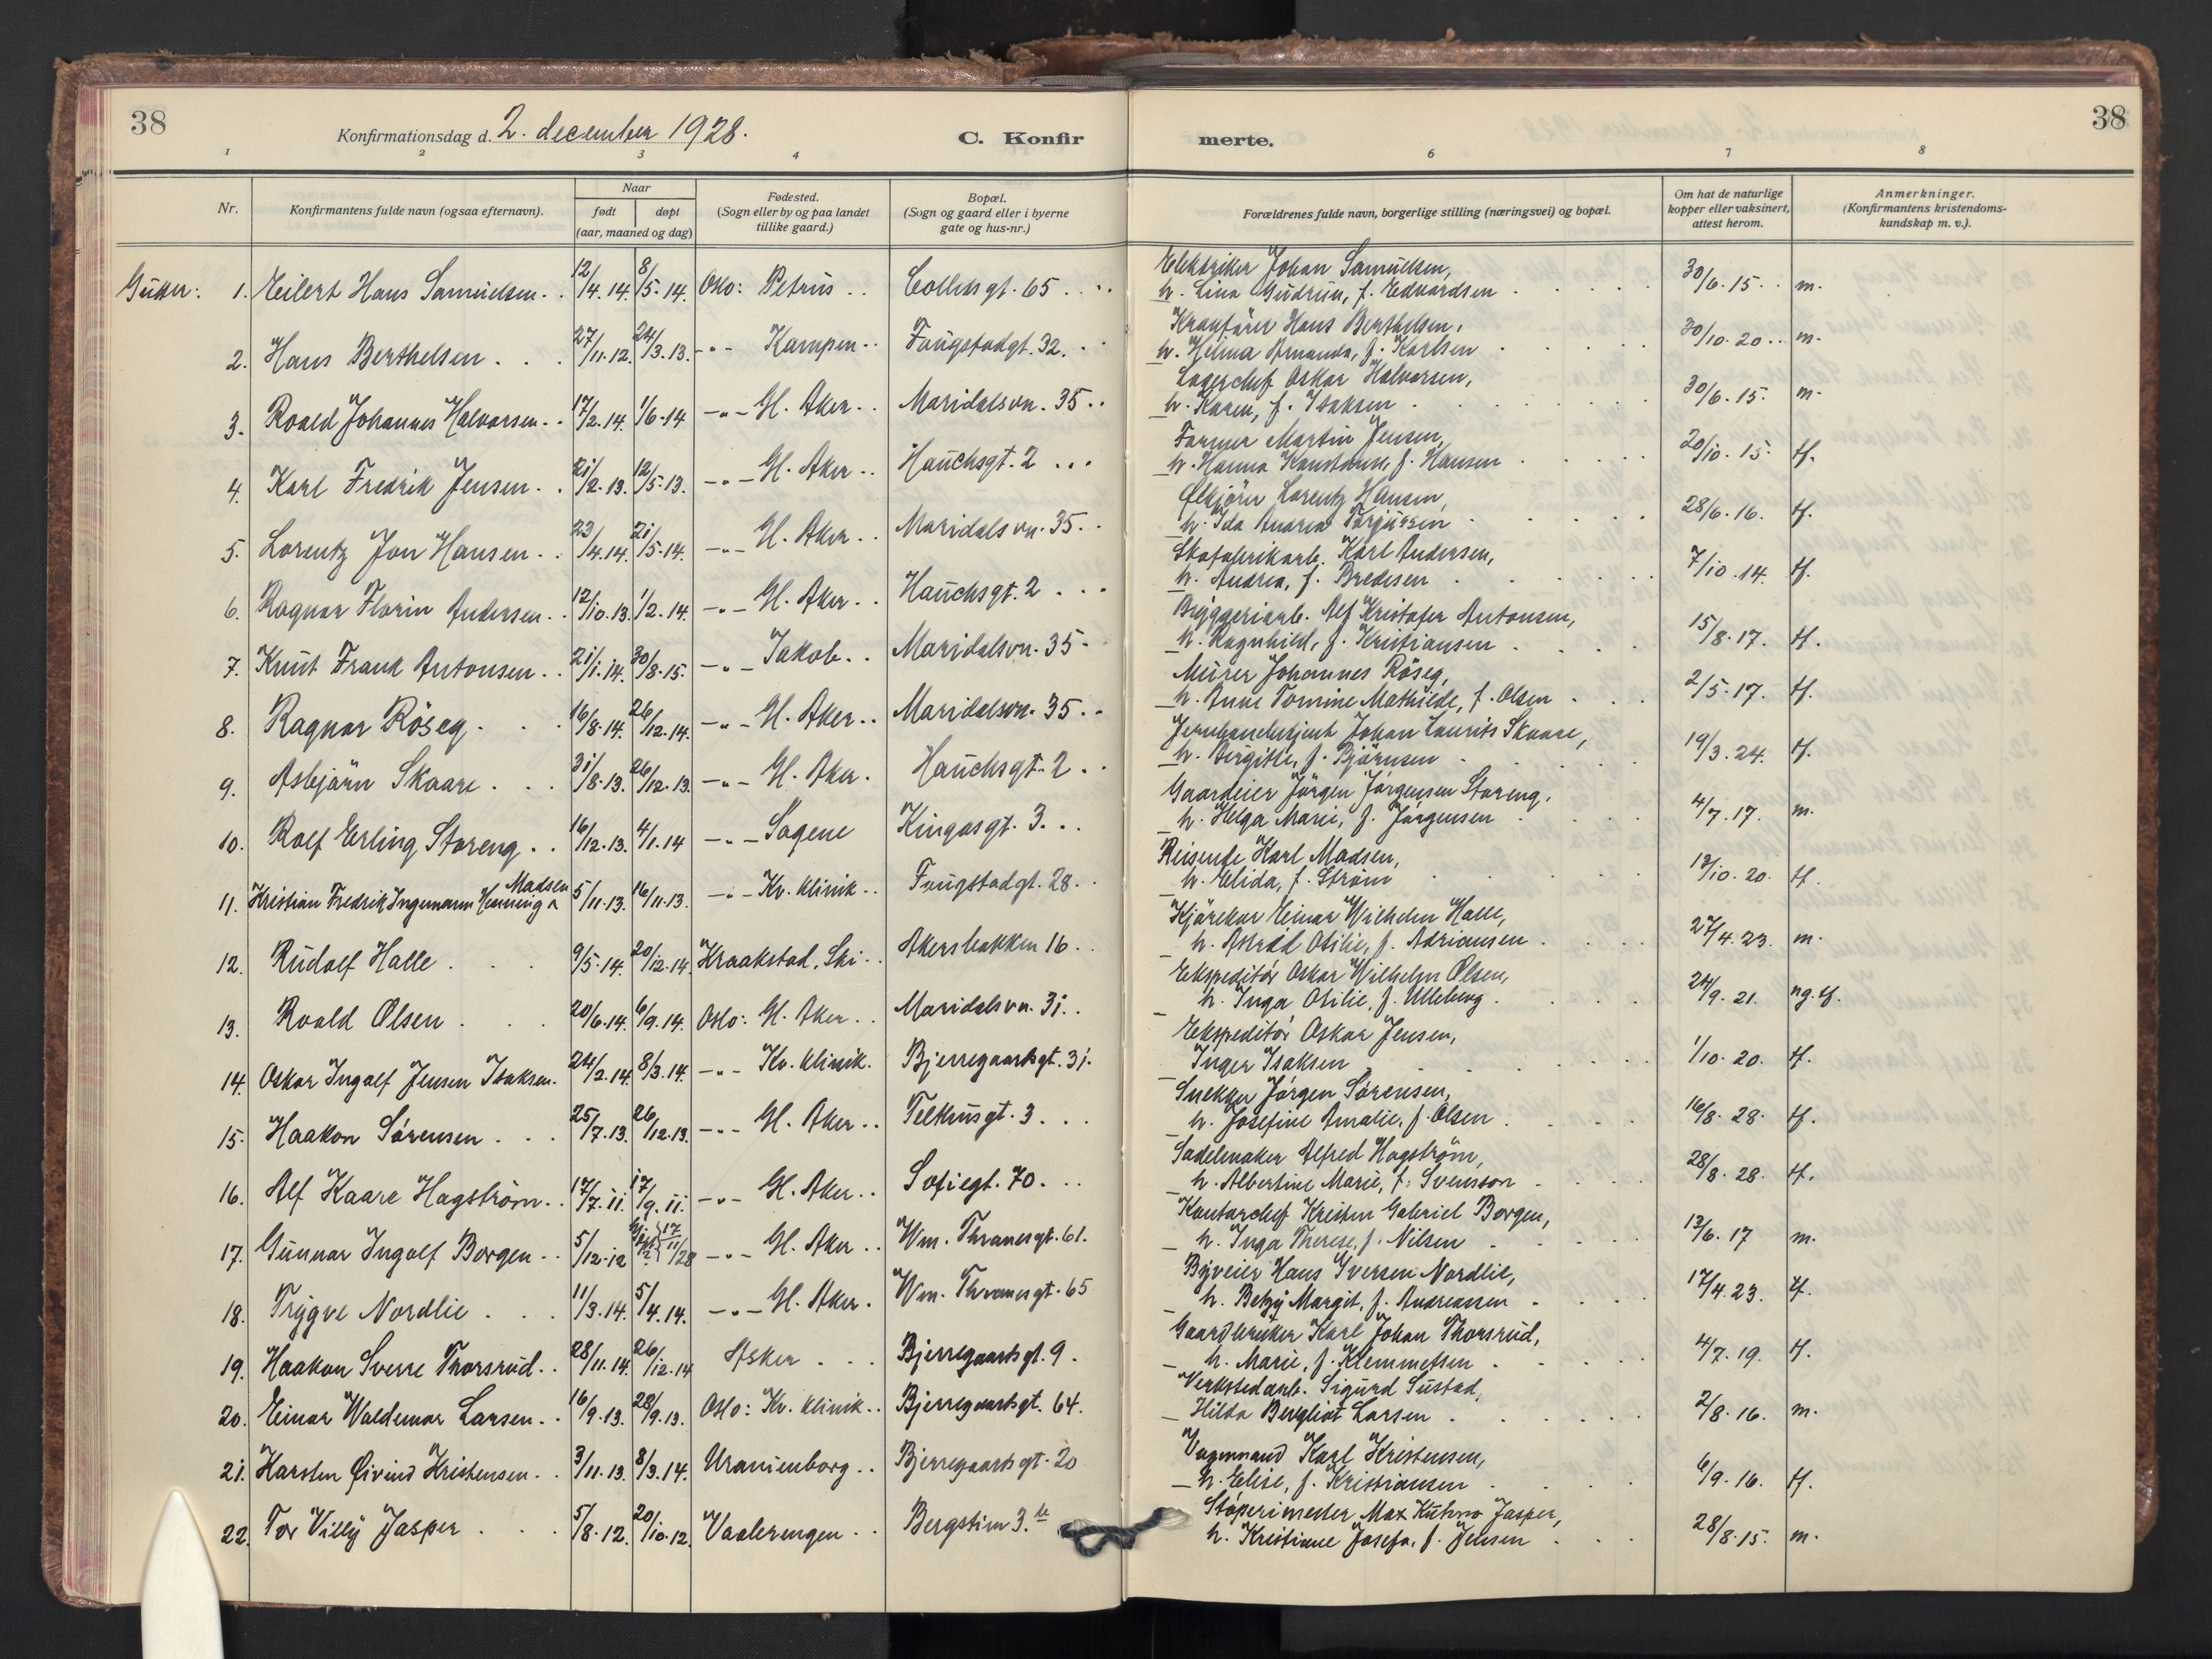 38
Konfirmationsdag d. 2. december 1928.
C. Konfir
merte.
38
1 2 3 4 6 7 8
Nr.
Konfirmantens fulde navn (ogsaa efternavn).
Naar
født døpt
(aar, maaned og dag)
Fødested.
(Sogn eller by og paa landet
tillike gaard.)
Bopæl.
(Sogn og gaard eller i byerne
gate og hus-nr.)
Forældrenes fulde navn, borgerlige stilling (næringsvei) og bopæl.
Om hat de naturlige
kopper eller vaksinert,
attest herom.
Anmerkninger.
(Konfirmantens kristendoms-
kundskap m. v.).
Gutter: 1. Eilert Hans Samuelsen. 12/4.14. 8/5.14. Oslo: Petrus Colletsgt. 65
Elektriker Johan Samuelsen,
h. Lina Gudrun, f. Edvardsen 30/6.15. m.
2. Hans Berthelsen 27/11.12. 24/3.13. -"- Kampen Fougstadgt. 32.
Kranfører Hans Berthelsen,
h. Helma Amanda, f. Karlsen 30/10.20. m.
3. Roald Johannes Halvorsen. 17/2.14. 1/6.14 -"- Gl. Aker Maridalsvn. 35
Lagerchef Oskar Halvorsen,
h. Karen, f. Isaksen 30/6.15. m.
4. Karl Fredrik Jensen. 21/2.13. 12/5.13. -"- Gl. Aker Hauchsgt. 2
Farmer Martin Jensen,
h. Hanna Konstanse, f. Hansen 20/10.15. tf.
5. Lorentz Jon Hansen. 23/4.14. 21/5.14. -"- Gl. Aker Maridalsvn. 35
Ølkjører Lorentz Hansen,
h. Ida Andrea Torjussen 28/6.16. tf.
6. Ragnar Florin Andersen. 12/10.13. 1/2.14. -"- Gl. Aker Hauchsgt. 2
Skofabrikarb. Karl Andersen,
h. Andrea, f. Bredesen 7/10.14. tf.
7. Knut Frank Antonsen. 21/1.14. 30/8.15. -"- Jakob Maridalsvn. 35
Bryggeriarb. Alf Kristofer Antonsen,
h. Ragnhild, f. Kristiansen 15/8.17. tf.
8. Ragnar Röseg. 16/8.14. 26/12.14. -"- Gl. Aker Maridalsvn. 35
Murer Johannes Röseg,
h. Anne Tomine Mathilde, f. Olsen 2/5.17. tf.
9. Asbjörn Skaare 31/8.13. 26/12.13. -"- Gl. Aker. Hauchsgt. 2
Jernbanebetjent Johan Laurits Skaare,
h. Birgitte, f. Björnsen 19/3.24. tf.
10. Rolf Erling Storeng 16/12.13. 4/1.14 -"- Sagene Kingosgt. 3
Gaardeier Jörgen Jörgensen Storeng,
h. Helga Marie, f. Jörgensen 4/7.17. m.
11. Kristian Fredrik Ingemann Henning Madsen 5/11.13. 16/11.13. -"- Kv. klinik Fougstadgt. 28
Reisende Karl Madsen,
h. Elida, f. Ström 13/10.20. tf.
12. Rudolf Halle 9/5.14. 20/12.14. Kraakstad, Ski Akersbakken 16
Kjörekar Einar Wilhelm Halle,
h. Astrid Otilie, f. Adriansen 27/4.23. m.
13. Roald Olsen 20/6.14. 6/9.14. Oslo: Gl. Aker Maridalsvn. 31
Ekspeditör Oskar Wilhelm Olsen,
h. Inga Otilie, f. Ulleberg 24/9.21. ng. tf.
14. Oskar Ingolf Jensen Isaksen. 24/2.14. 8/3.14. -"- Kv. klinik. Bjerregaardsgt. 31.
Ekspeditör Oskar Jensen,
Inger Isaksen 1/10.20. tf.
15. Haakon Sörensen 25/7.13. 26/12.13. -"- Gl. Aker Telthusgt. 3
Snekker Jörgen Sörensen,
h. Josefine Amalie, f. Olsen 16/8.28. tf.
16. Alf Kaare Hagström. 17/7.11. 17/9.11. -"- Gl. Aker Sofiegt. 70
Sadelmaker Alfred Hagström,
h. Albertine Marie, f. Svensson 28/8.28. tf.
17. Gunnar Ingolf Borgen 5/12.12 17/11/28 -"- Gl. Aker Wm. Thranesgt. 61.
Kontorchef Kristen Gabriel Borgen,
h. Inga Therese, f. Nilsen 13/6.17 m.
18. Trygve Nordlie 11/3.14. 5/4.14. -"- Gl. Aker. Wm. Thranesgt. 65
Byveier Hans Iversen Nordlie,
h. Betzy Margit, f. Andreassen 17/4.23. tf.
19. Haakon Sverre Thorsrud. 28/11.14. 26/12.14 Asker Bjerregaardsgt. 9.
Gaardbruker Karl Johan Thorsrud,
h. Marie, f. Klemmetsen 4/7.19. tf.
20. Einar Waldemar Larsen. 16/9.13. 28/9.13. Oslo: Kv. klinik Bjerregaardsgt. 64.
Verkstedarb. Sigurd Sustad,
Hilda Bergliot Larsen 2/8.16. m.
21. Karsten Øivind Kristensen. 3/11.13. 8/3.14. Uranienborg Bjerregaardsgt. 20
Vognmand Karl Kristensen,
h. Elise, f. Kristiansen 6/9.16. tf.
22. Tor Villy Jasper 5/8.12. 20/10.12. Vaalerengen Bergstien 3.
Stöperimester Max Kuhno Jasper,
h. Kristiane Josefa, f. Jensen 28/8.15. m.